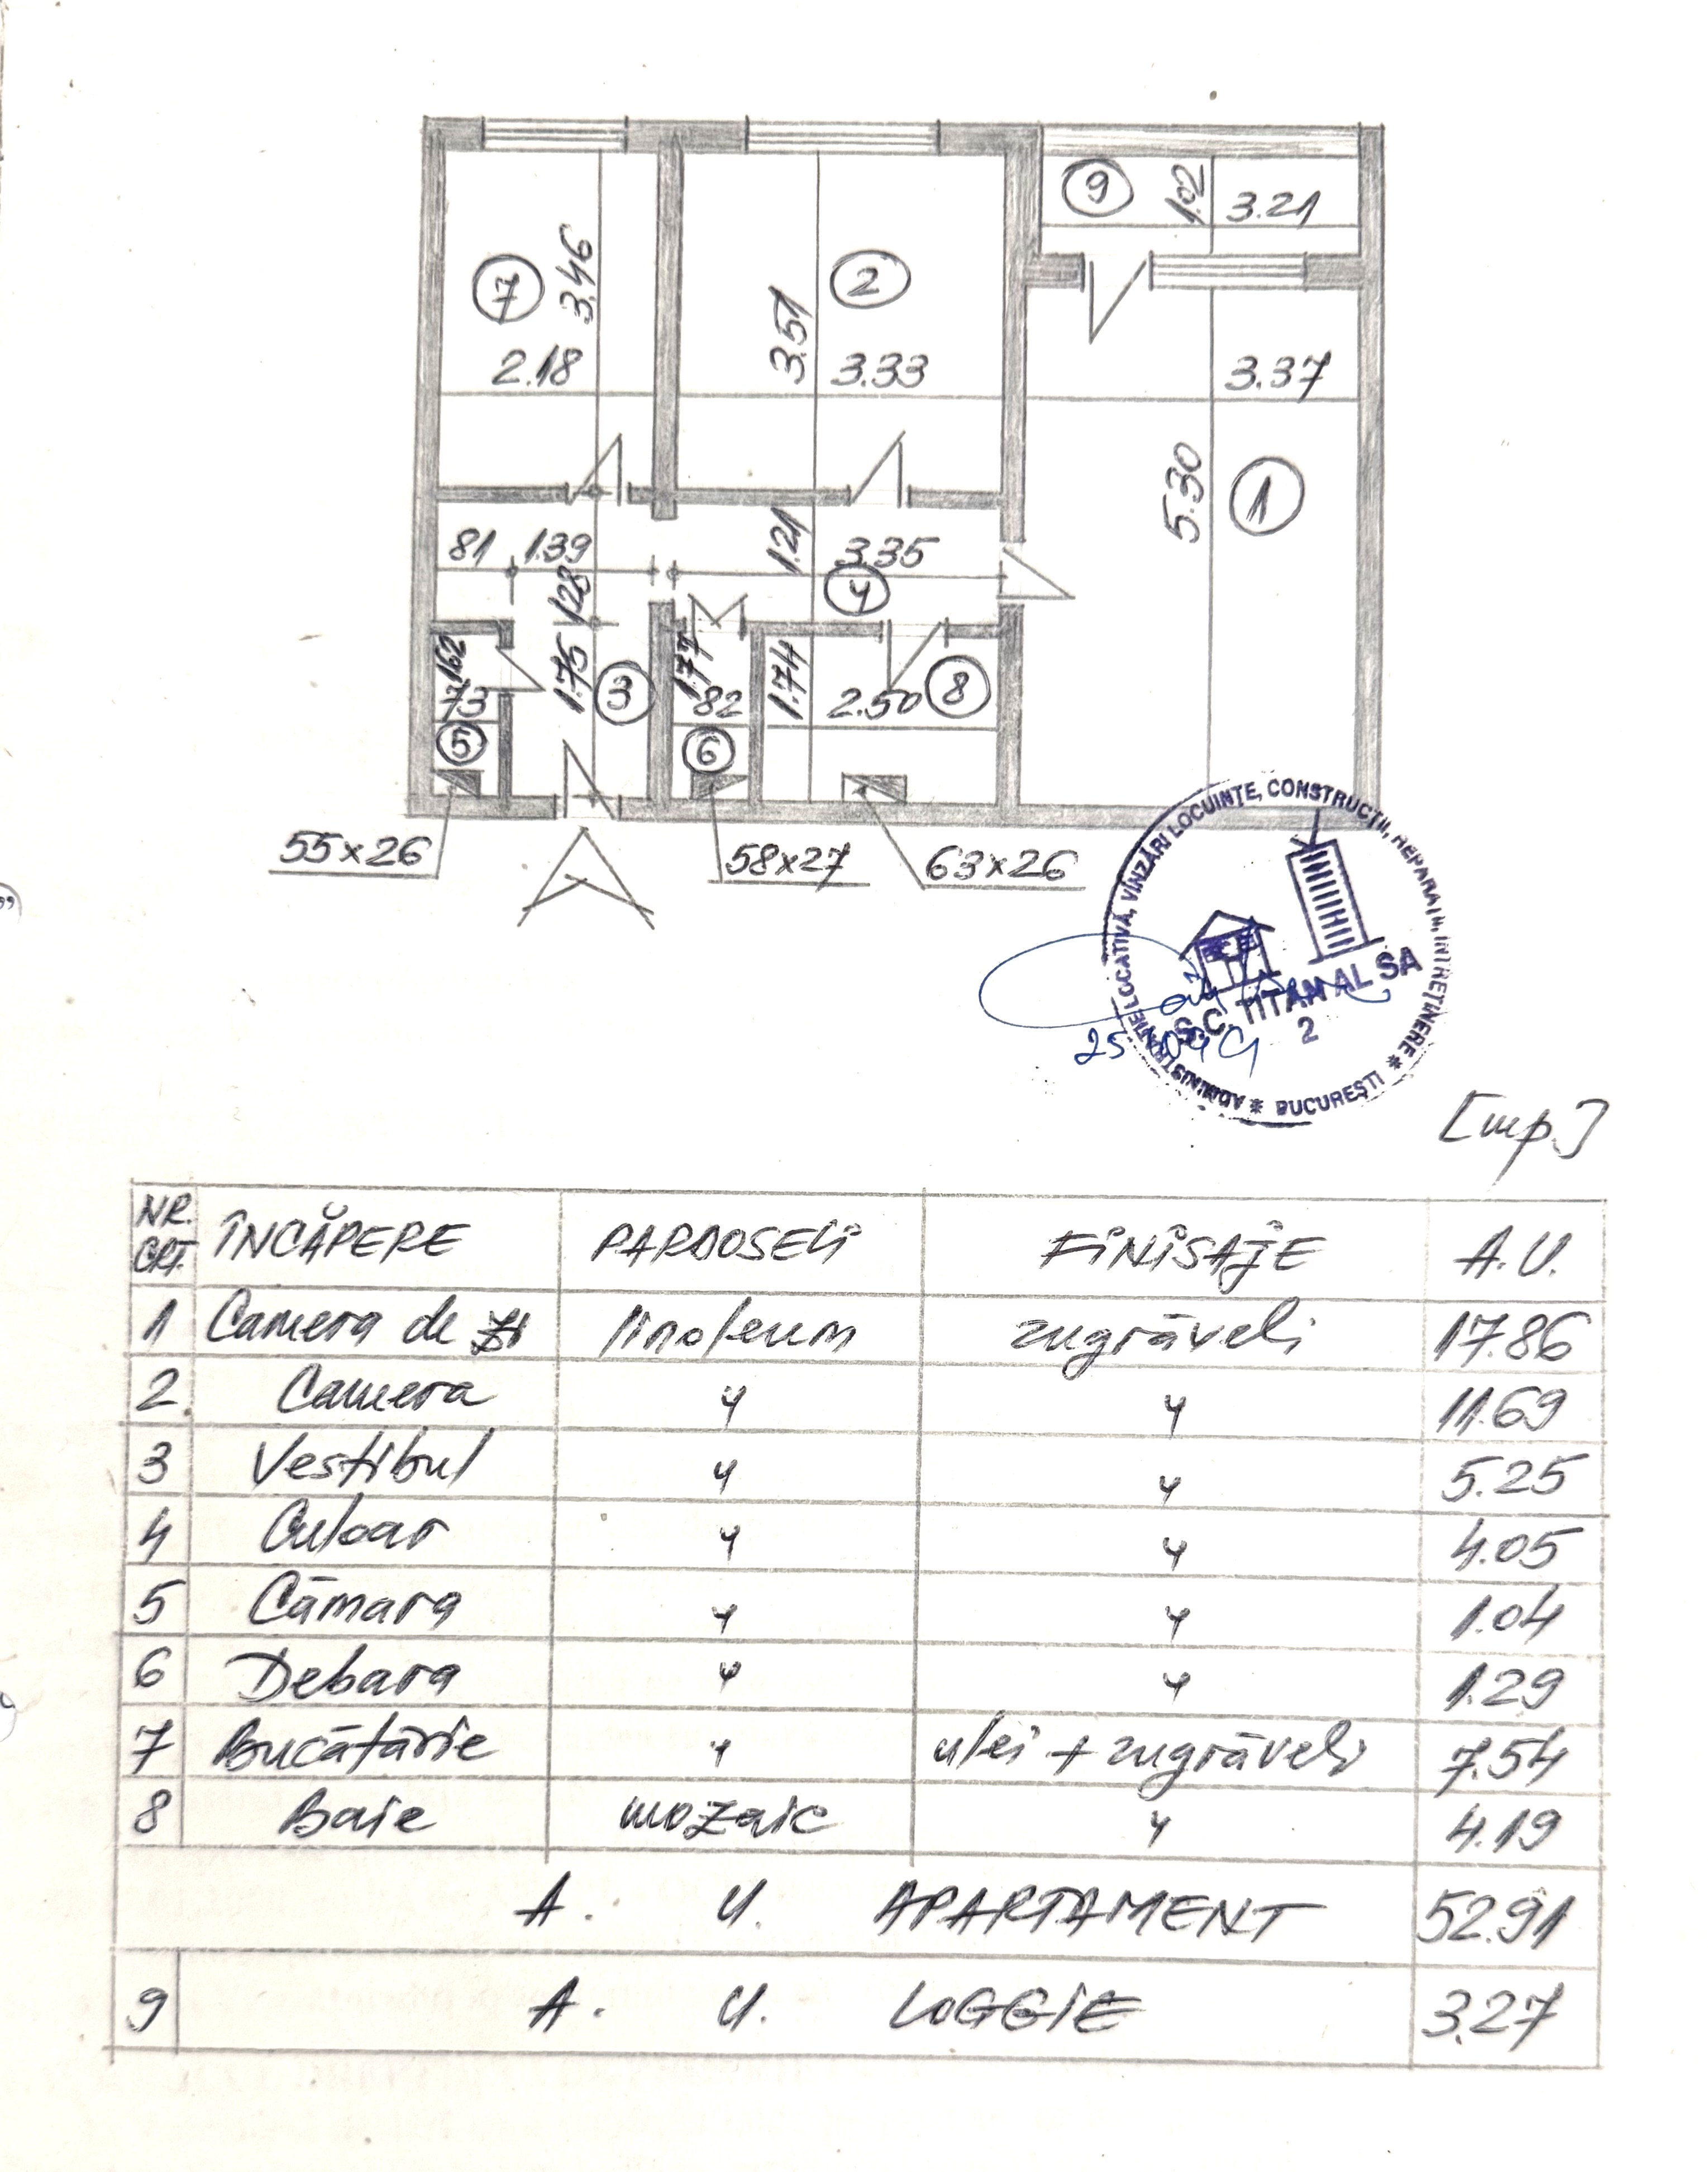 9
1.02
3.21
7
3.46
2.18
2
3.51
3.33
3.37
5.30
1
81
1.39
1.28
1.21
3.35
4
1.62
73
5
1.75
3
1.77
82
6
1.74
2.50
8
55x26
58x27
63x26
ADMINISTRAȚIE LOCATIVĂ, VÎNZĂRI LOCUINȚE, CONSTRUCȚII, REPARAȚII, ÎNTREȚINERE * BUCUREȘTI *
S.C. TITAN AL SA
2
[mp.]
NR. CRT. ÎNCĂPERE PARDOSELI FINISAJE A.U.
1 Camera de zi linoleum zugrăveli 17.86
2 Camera " " 11.69
3 Vestibul " " 5.25
4 Culoar " " 4.05
5 Cămara " " 1.04
6 Debara " " 1.29
7 Bucătărie " ulei + zugrăveli 7.54
8 Baie mozaic " 4.19
A. U. APARTAMENT 52.91
9 A. U. LOGGIE 3.27